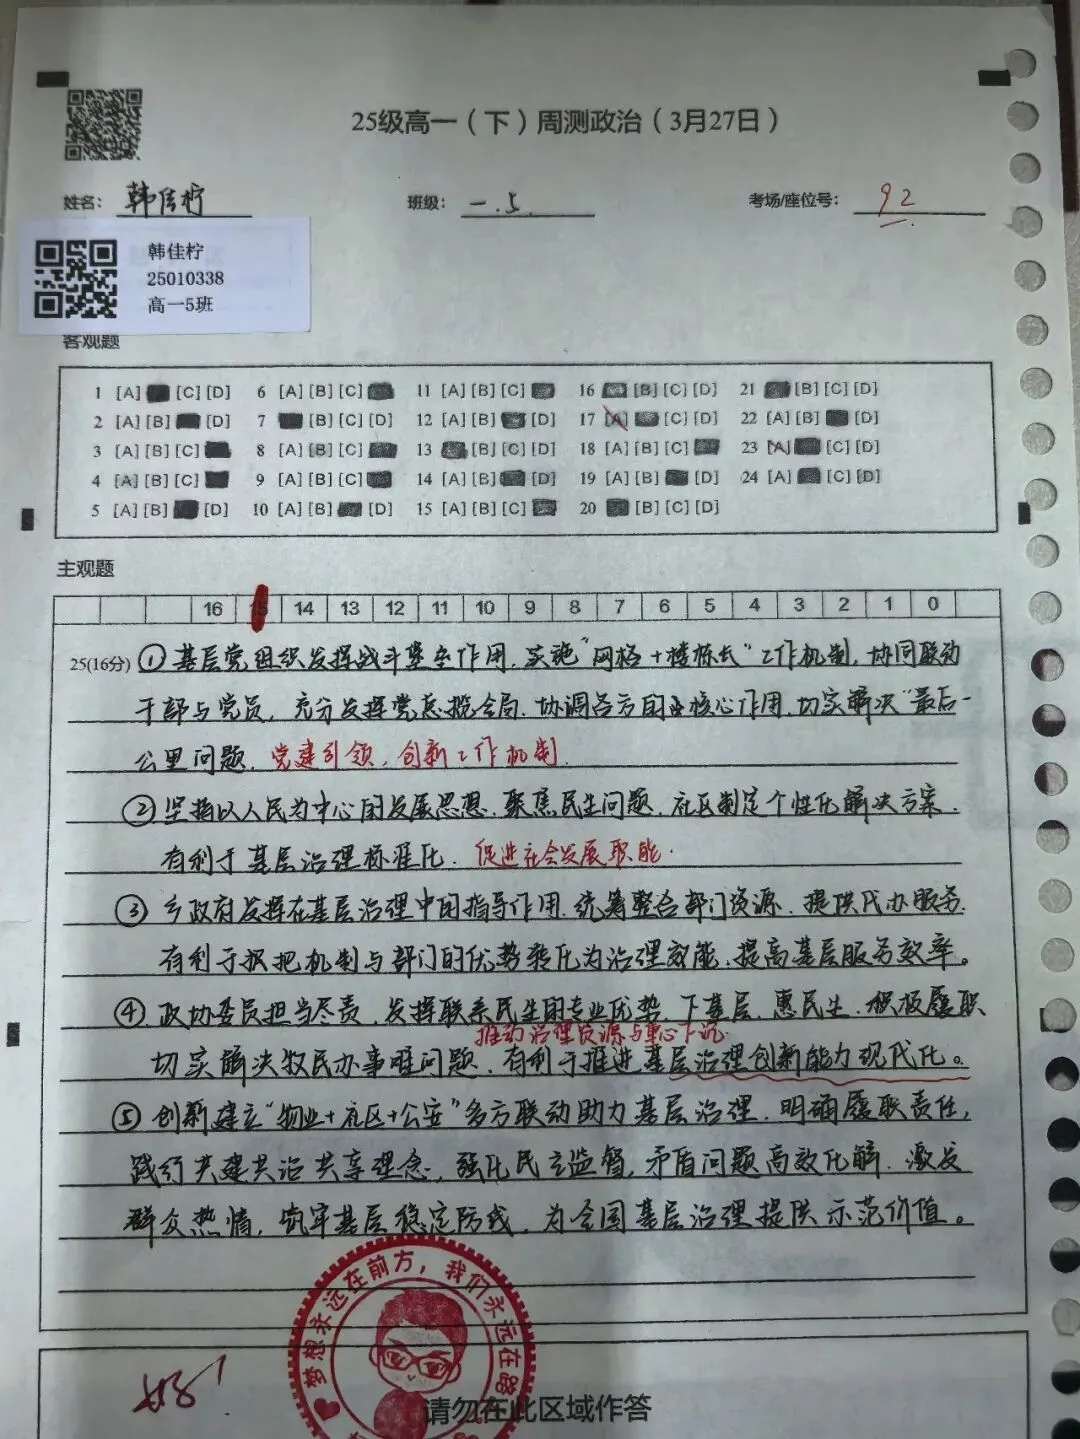 25级高一（下）周测政治（3月27日）
姓名： 韩佳柠 班级： 一.5. 考场/座位号： 92
韩佳柠
25010338
高一5班
客观题
1 [A] [C] [D] 6 [A] [B] [C] 11 [A] [B] [C] 16 [B] [C] [D] 21 [B] [C] [D]
2 [A] [B] [D] 7 [B] [C] [D] 12 [A] [B] [D] 17 [A] [C] [D] 22 [A] [B] [D]
3 [A] [B] [C] 8 [A] [B] [C] 13 [B] [C] [D] 18 [A] [B] [C] 23 [A] [C] [D]
4 [A] [B] [C] 9 [A] [B] [C] 14 [A] [B] [D] 19 [A] [B] [D] 24 [A] [C] [D]
5 [A] [B] [D] 10 [A] [B] [D] 15 [A] [B] [C] 20 [B] [C] [D]
主观题
16 15 14 13 12 11 10 9 8 7 6 5 4 3 2 1 0
25(16分) ①基层党组织发挥战斗堡垒作用，实施“网格+楼栋长”工作机制，协同联动
干部与党员，充分发挥党总揽全局、协调各方的核心作用，切实解决“最后一
公里问题。党建引领，创新工作机制
②坚持以人民为中心的发展思想，聚焦民生问题，社区制定个性化解决方案，
有利于基层治理标准化。促进社会发展职能.
③乡政府发挥在基层治理中的指导作用，统筹整合部门资源，提供代办服务，
有利于把机制与部门的优势转化为治理效能，提高基层服务效率。
④政协委员担当尽责，发挥联系民生的专业优势，下基层，惠民生，积极履职
推动治理资源与重心下沉
切实解决牧民办事难问题，有利于推进基层治理创新能力现代化。
⑤创新建立“物业+社区+公安”多方联动助力基层治理，明确履职责任，
践行共建共治共享理念，强化民主监督，矛盾问题高效化解，激发
群众热情，筑牢基层稳定防线，为全国基层治理提供示范价值。
梦想永远在前方，我们永远在路
请勿在此区域作答